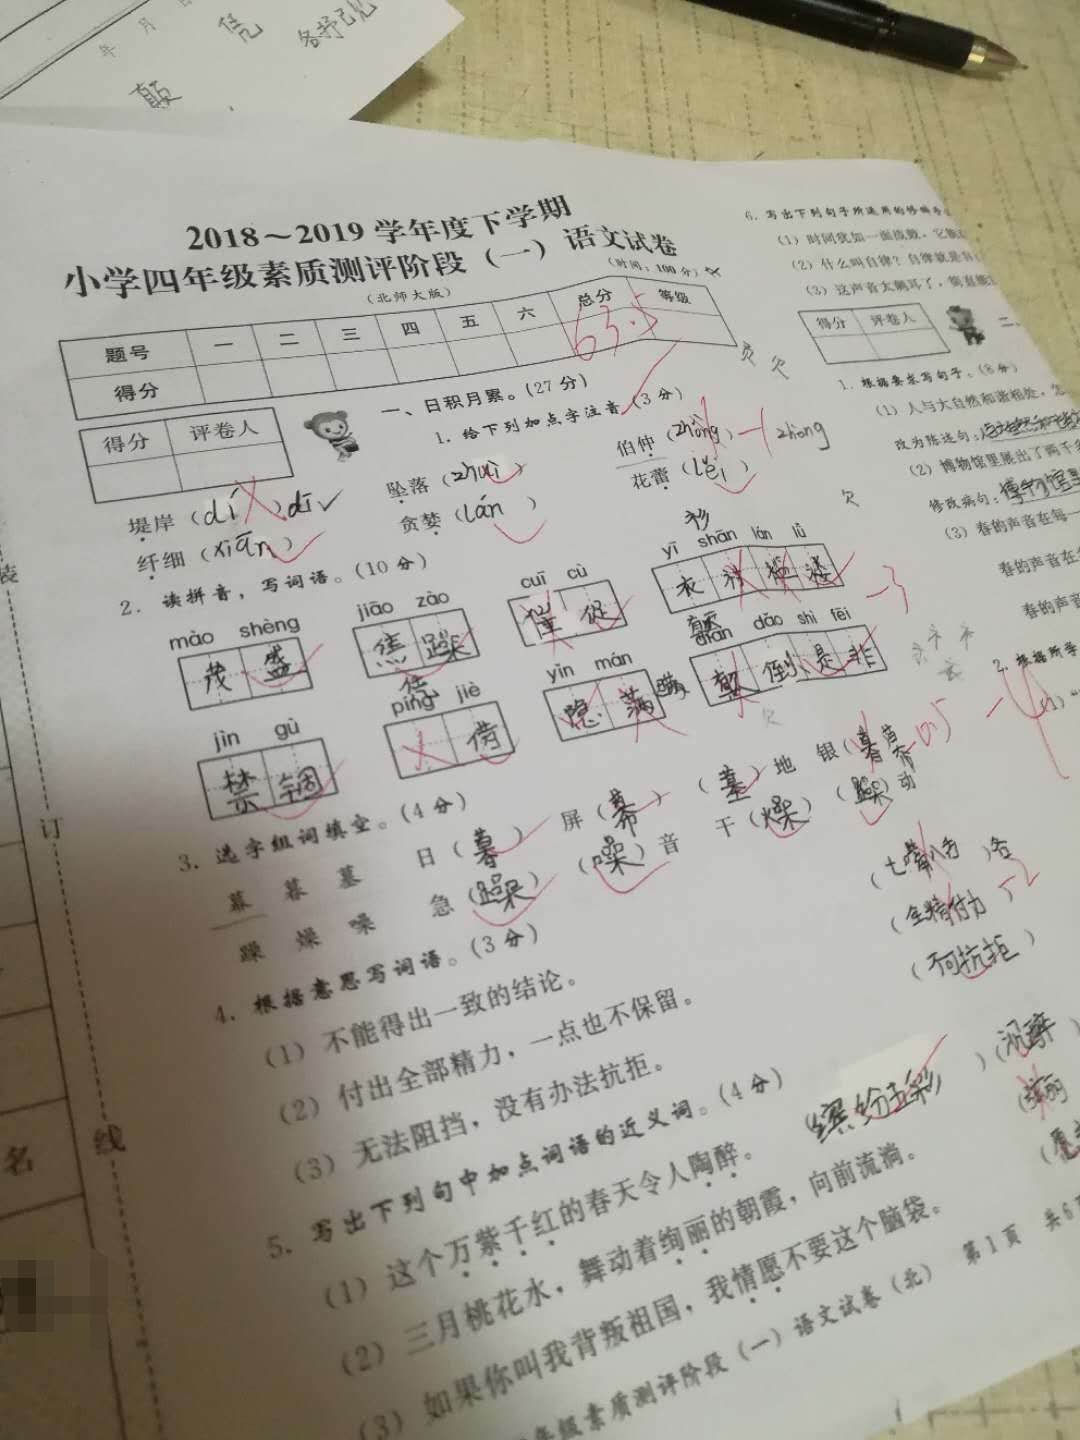 年 月
凭
各抒己见
颠
2018～2019 学年度下学期
小学四年级素质测评阶段（一）语文试卷
（北师大版）
（时间：100分）
题号 一 二 三 四 五 六 总分 等级
得分 63.5
得分 评卷人
一、日积月累。（27分）
1. 给下列加点字注音（3分）
堤岸（dí）dī 坠落（zhuì） 伯仲（zhōng）-1 zhòng
纤细（xiān） 贪婪（lán） 花蕾（lěi）
2. 读拼音，写词语。（10分）
mào shèng jiāo zào cuī cù yī shān lán lǚ
茂盛 焦躁 促 衣
衫
-3
jìn gù píng jiè yǐn mán diān dǎo shì fēi
禁锢 借 隐 瞒 倒是非
颠
3. 选字组词填空。（4分）
幕 暮 墓 日（暮） 屏（幕） （墓）地 银（暮） -0.5
躁 燥 噪 急（躁） （噪）音 干（燥） （躁）动
4. 根据意思写词语。（3分）
（1）不能得出一致的结论。 （七嘴八舌）
（2）付出全部精力，一点也不保留。 （全精付力） -2
（3）无法阻挡，没有办法抗拒。 （不可抗拒）
5. 写出下列句中加点词语的近义词。（4分）
（1）这个万紫千红的春天令人陶醉。 （缤纷五彩）（沉醉
（2）三月桃花水，舞动着绚丽的朝霞，向前流淌。
（3）如果你叫我背叛祖国，我情愿不要这个脑袋。
年级素质测评阶段（一）语文试卷（北） 第1页 共6
装
订
线
名
6. 写出下列句子所运用的修辞
（1）时间犹如一面
（2）什么叫自律？自律就是
（3）这声音太刺耳了，简直
得分 评卷人
二、
1. 根据要求写句子。（8分）
（1）人与大自然和谐相处，怎
改为陈述句：
（2）博物馆里展出了两千多
修改病句：博物馆里
（3）春的声音在每一
春的声音在
春的声音
2. 根据所学
（1）“
-4